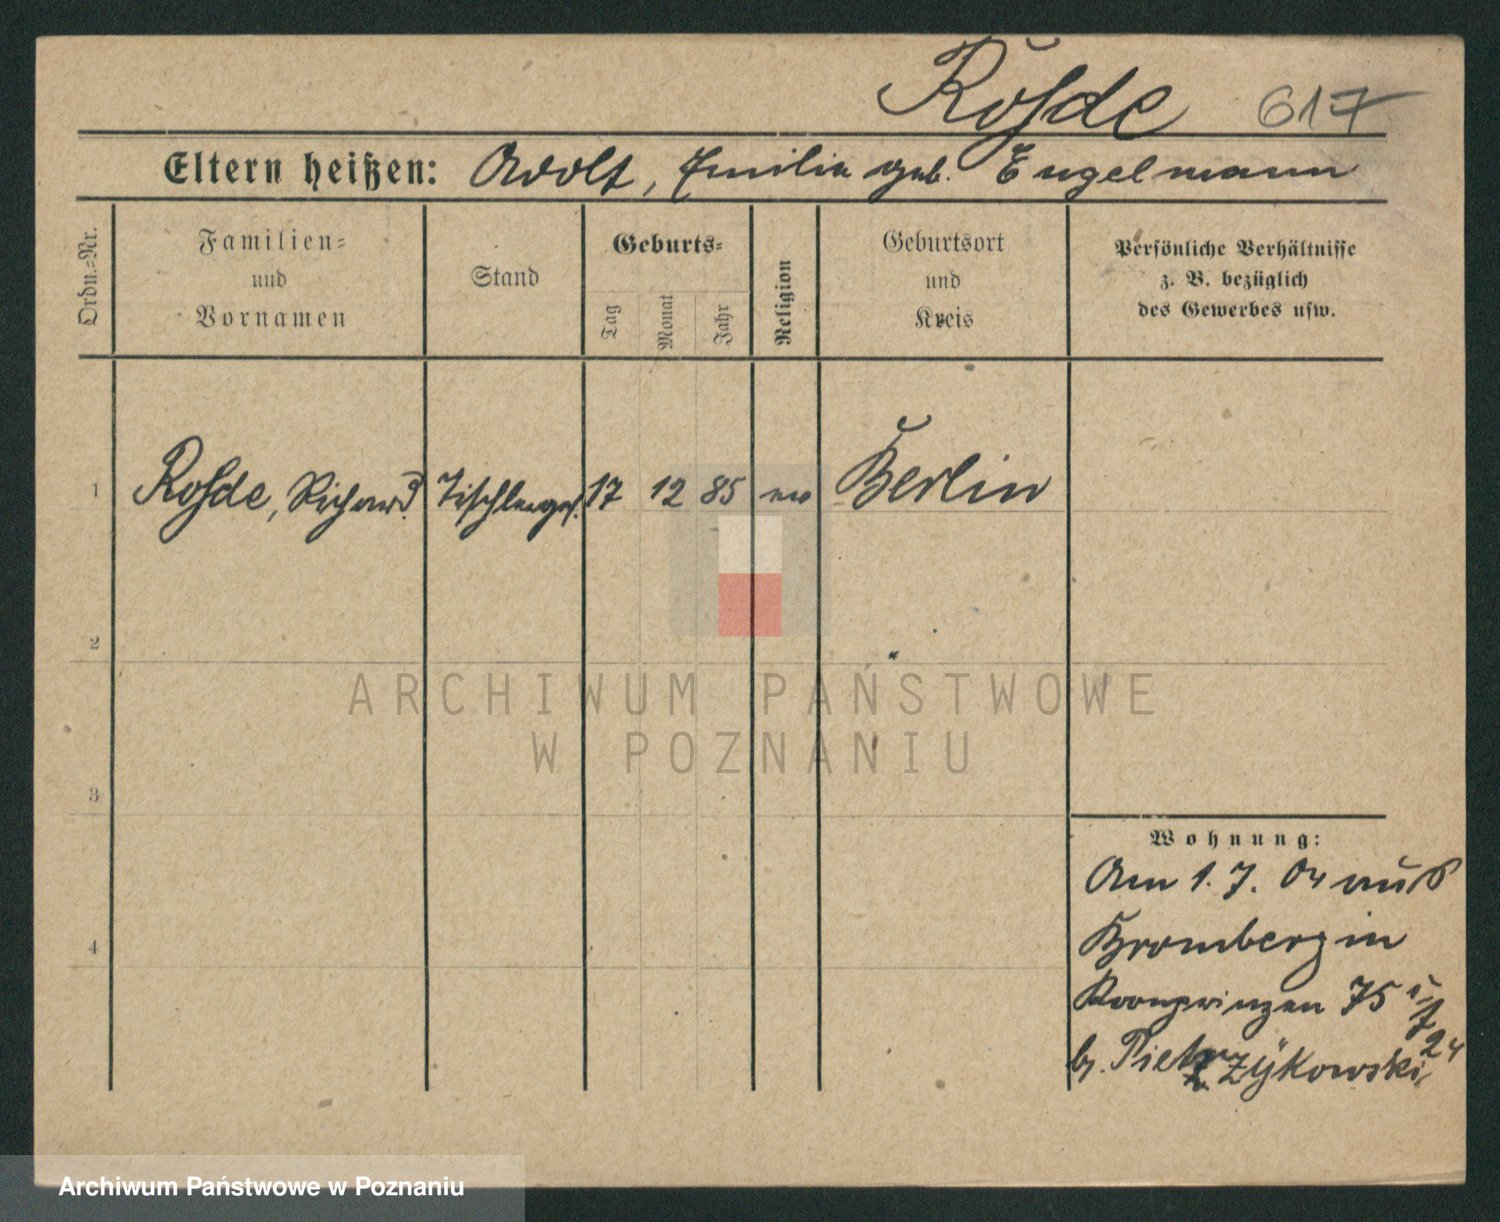 Rohde 617
Eltern heißen: Adolf, Emilie geb. Engelmann
Ordn.=Nr.
Familien=
und
Vornamen
Stand
Geburts=
Tag
Monat
Jahr
Religion
Geburtsort
und
Kreis
Persönliche Verhältnisse
z. B. bezüglich
des Gewerbes usw.
1 Rohde, Richard Tischlerges. 17 12 85 ev Berlin
2
3
4
Wohnung:
Am 1. 7. 04 aus
Bromberg in
Kronprinzen 75
b. Pietrzykowski
ARCHIWUM PAŃSTWOWE
W POZNANIU
Archiwum Państwowe w Poznaniu